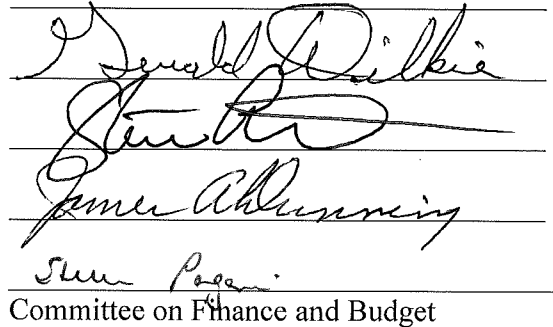 Gerald Wilkie
James A Dunning
Steven Pagani
Committee on Finance and Budget